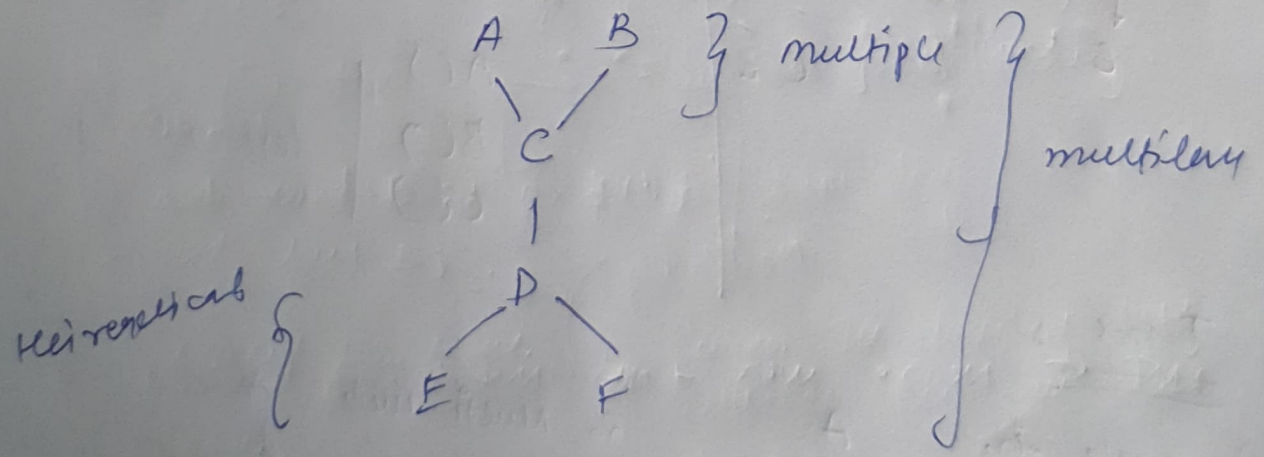 A B } multiple }
C
multilevel
D
Heirarchical {
E F